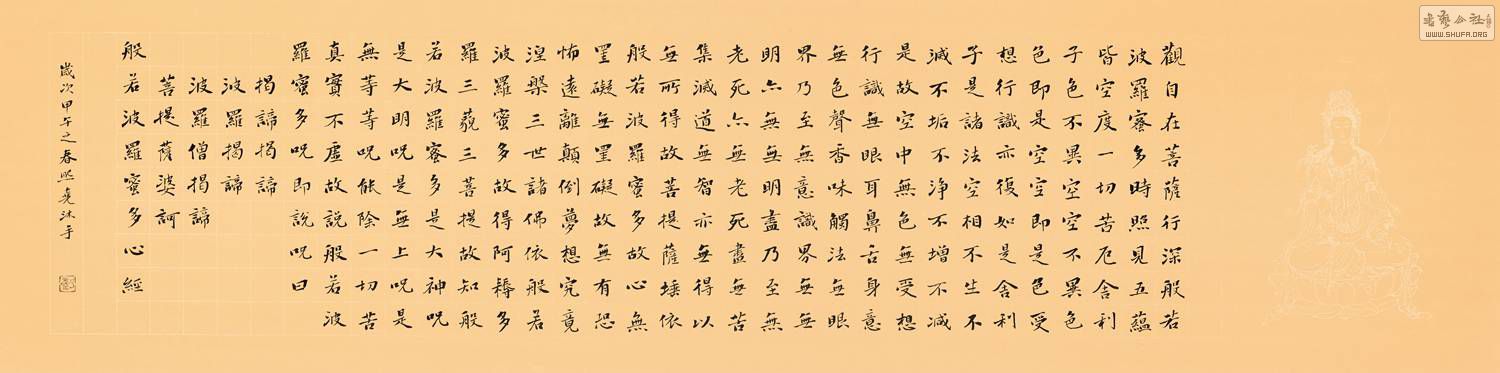 觀自在菩薩行深般若
波羅蜜多時照見五蘊
皆空度一切苦厄舍利
子色不異空空不異色
色即是空空即是色受
想行識亦復如是舍利
子是諸法空相不生不
滅不垢不淨不增不減
是故空中無色無受想
行識無眼耳鼻舌身意
無色聲香味觸法無眼
界乃至無意識界無無
明亦無無明盡乃至無
老死亦無老死盡無苦
集滅道無智亦無得以
無所得故菩提薩埵依
般若波羅蜜多故心無
罣礙無罣礙故無有恐
怖遠離顛倒夢想究竟
涅槃三世諸佛依般若
波羅蜜多故得阿耨多
羅三藐三菩提故知般
若波羅蜜多是大神呪
是大明呪是無上呪是
無等等呪能除一切苦
真實不虛故說般若波
羅蜜多呪即說呪曰
揭諦揭諦
波羅揭諦
波羅僧揭諦
菩提薩婆訶
般若波羅蜜多心經
歲次甲午之春熙堯沐手
書藝公社
WWW.SHUFA.ORG